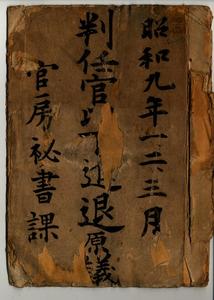 昭和九年一二三月
判任官 進退原議
官房秘書課